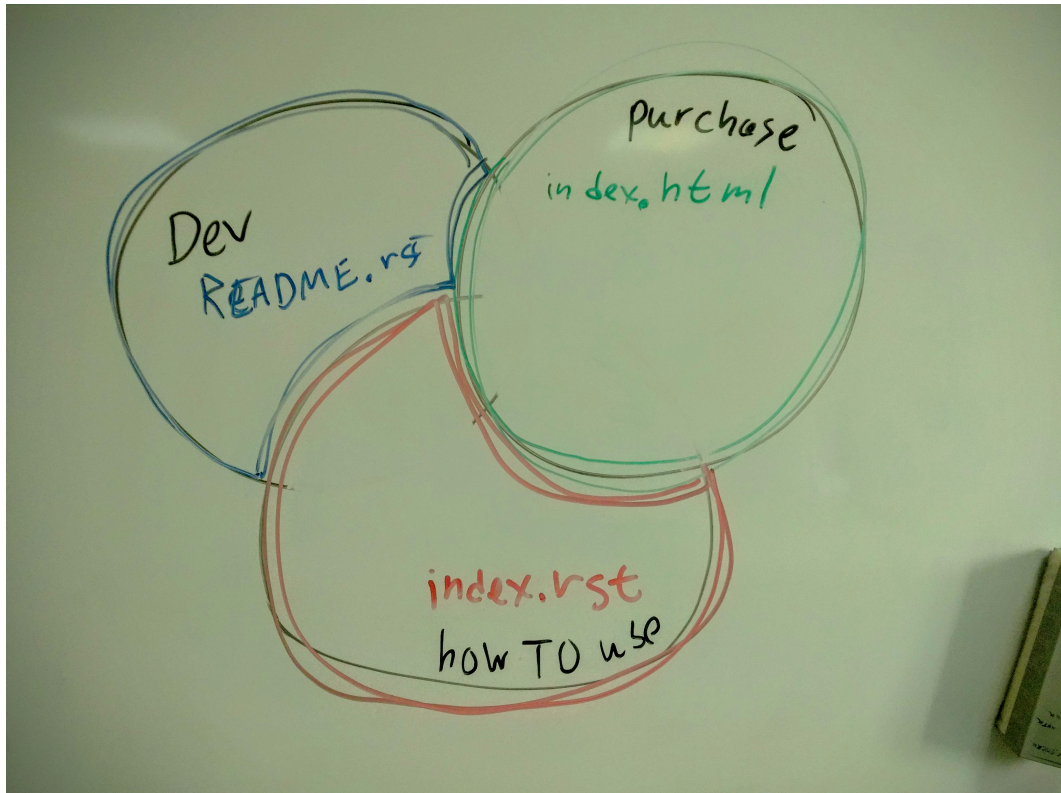 Dev
README.rst
purchase
index.html
index.rst
how TO use